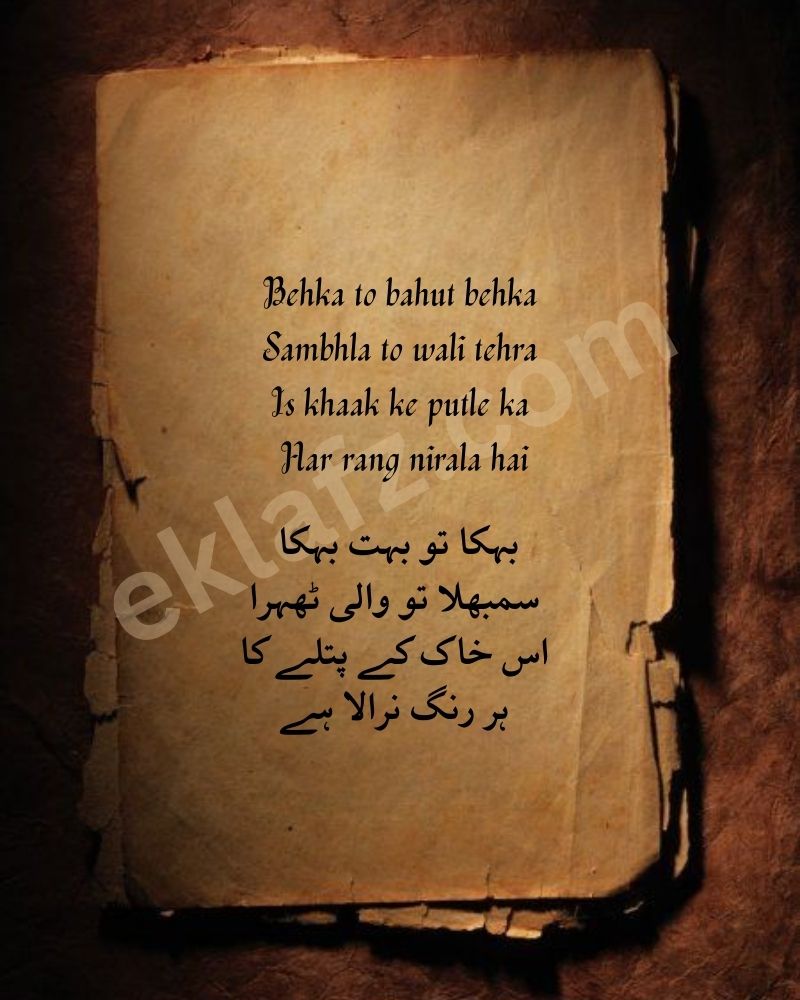 Behka to bahut behka
Sambhla to wali tehra
Is khaak ke putle ka
Har rang nirala hai
بہکا تو بہت بہکا
سمبھلا تو والی ٹھہرا
اس خاک کے پتلے کا
ہر رنگ نرالا ہے
eklafz.com